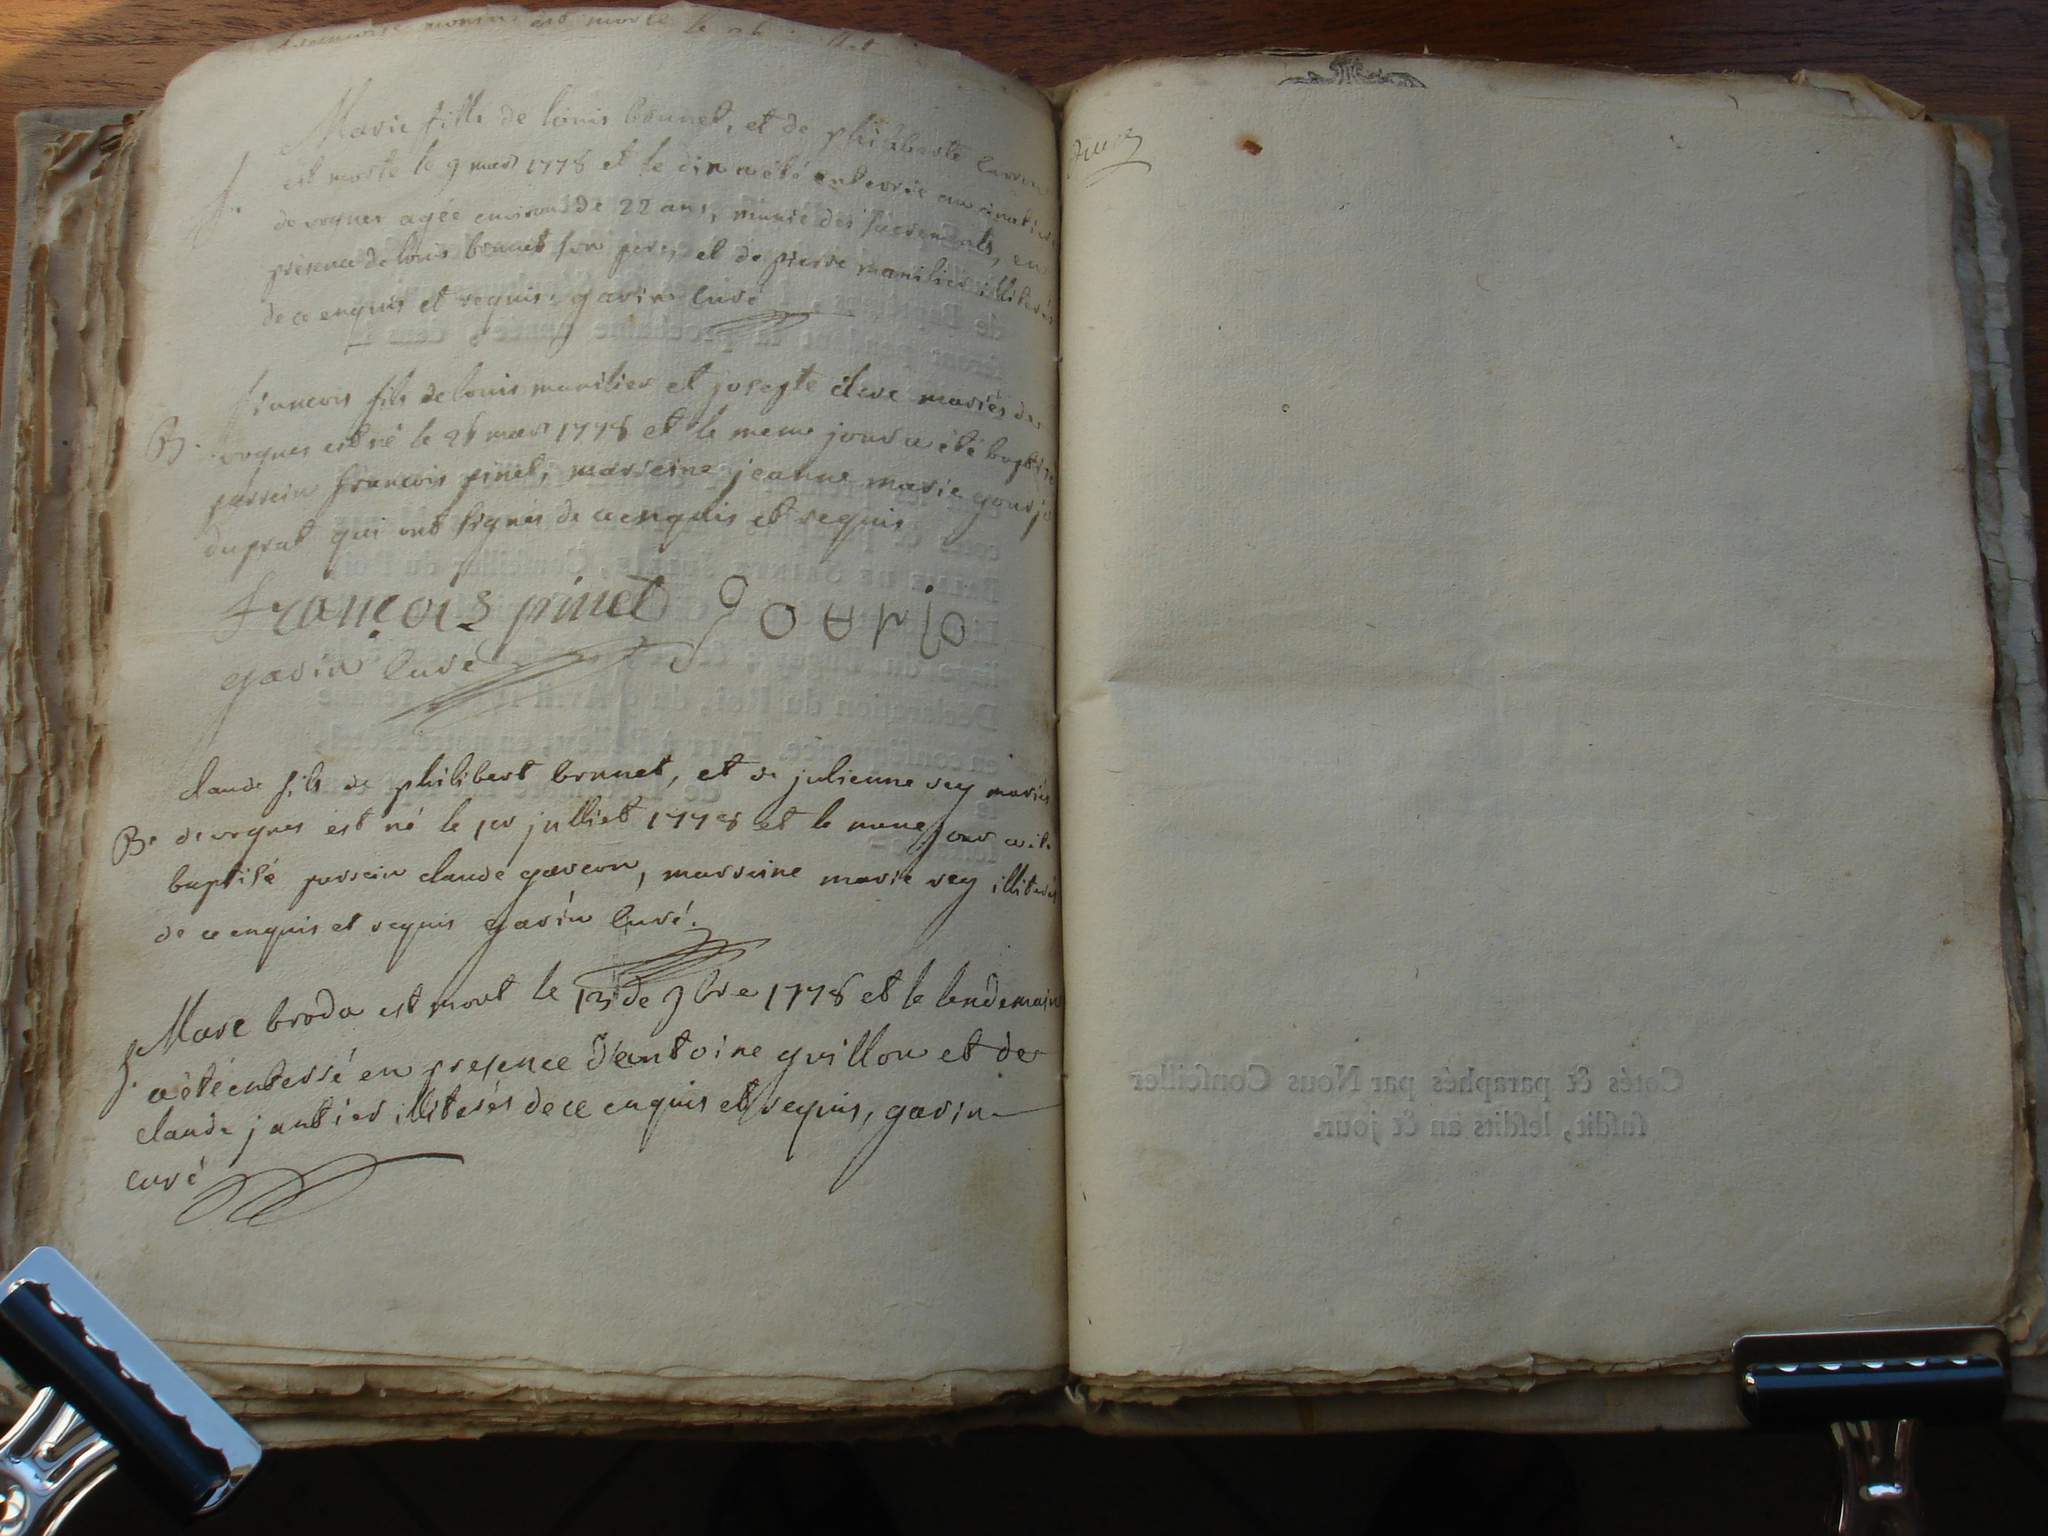 est morte le
Marie fille de louis brunet, et de philiberte
S. est morte le 9 mars 1778 et le dix a été enterrée au cimetiere
de vognes agée environ de 22 ans, munie des sacrements, en
présence de louis brunet son pere, et de pierre manilier illiterés
de ce enquis et requis. gavin Curé
francois fils de louis manilier et josepte clerc mariés de
B. vognes est né le 26 mars 1778 et le meme jour a été baptisé
parrein francois pinet, marreine jeanne marie gourjo
duprat qui ont signés de ce enquis et requis
françois pinet gourjo
gavin Curé
claude fils de philibert brunet, et de julienne rey mariés
B. de vognes est né le 1er julliet 1778 et le meme jour a été
baptisé parrein claude garcon, marreine marie rey illiterés
de ce enquis et requis gavin Curé.
S. Marc broda est mort le 13 de 9bre 1778 et le lendemain
a été enterré en presence d'antoine guillon et de
claude jantier illiterés de ce enquis et requis, gavin
curé
Cotés & paraphés par Nous Conseiller
susdit, lesdits an & jour.